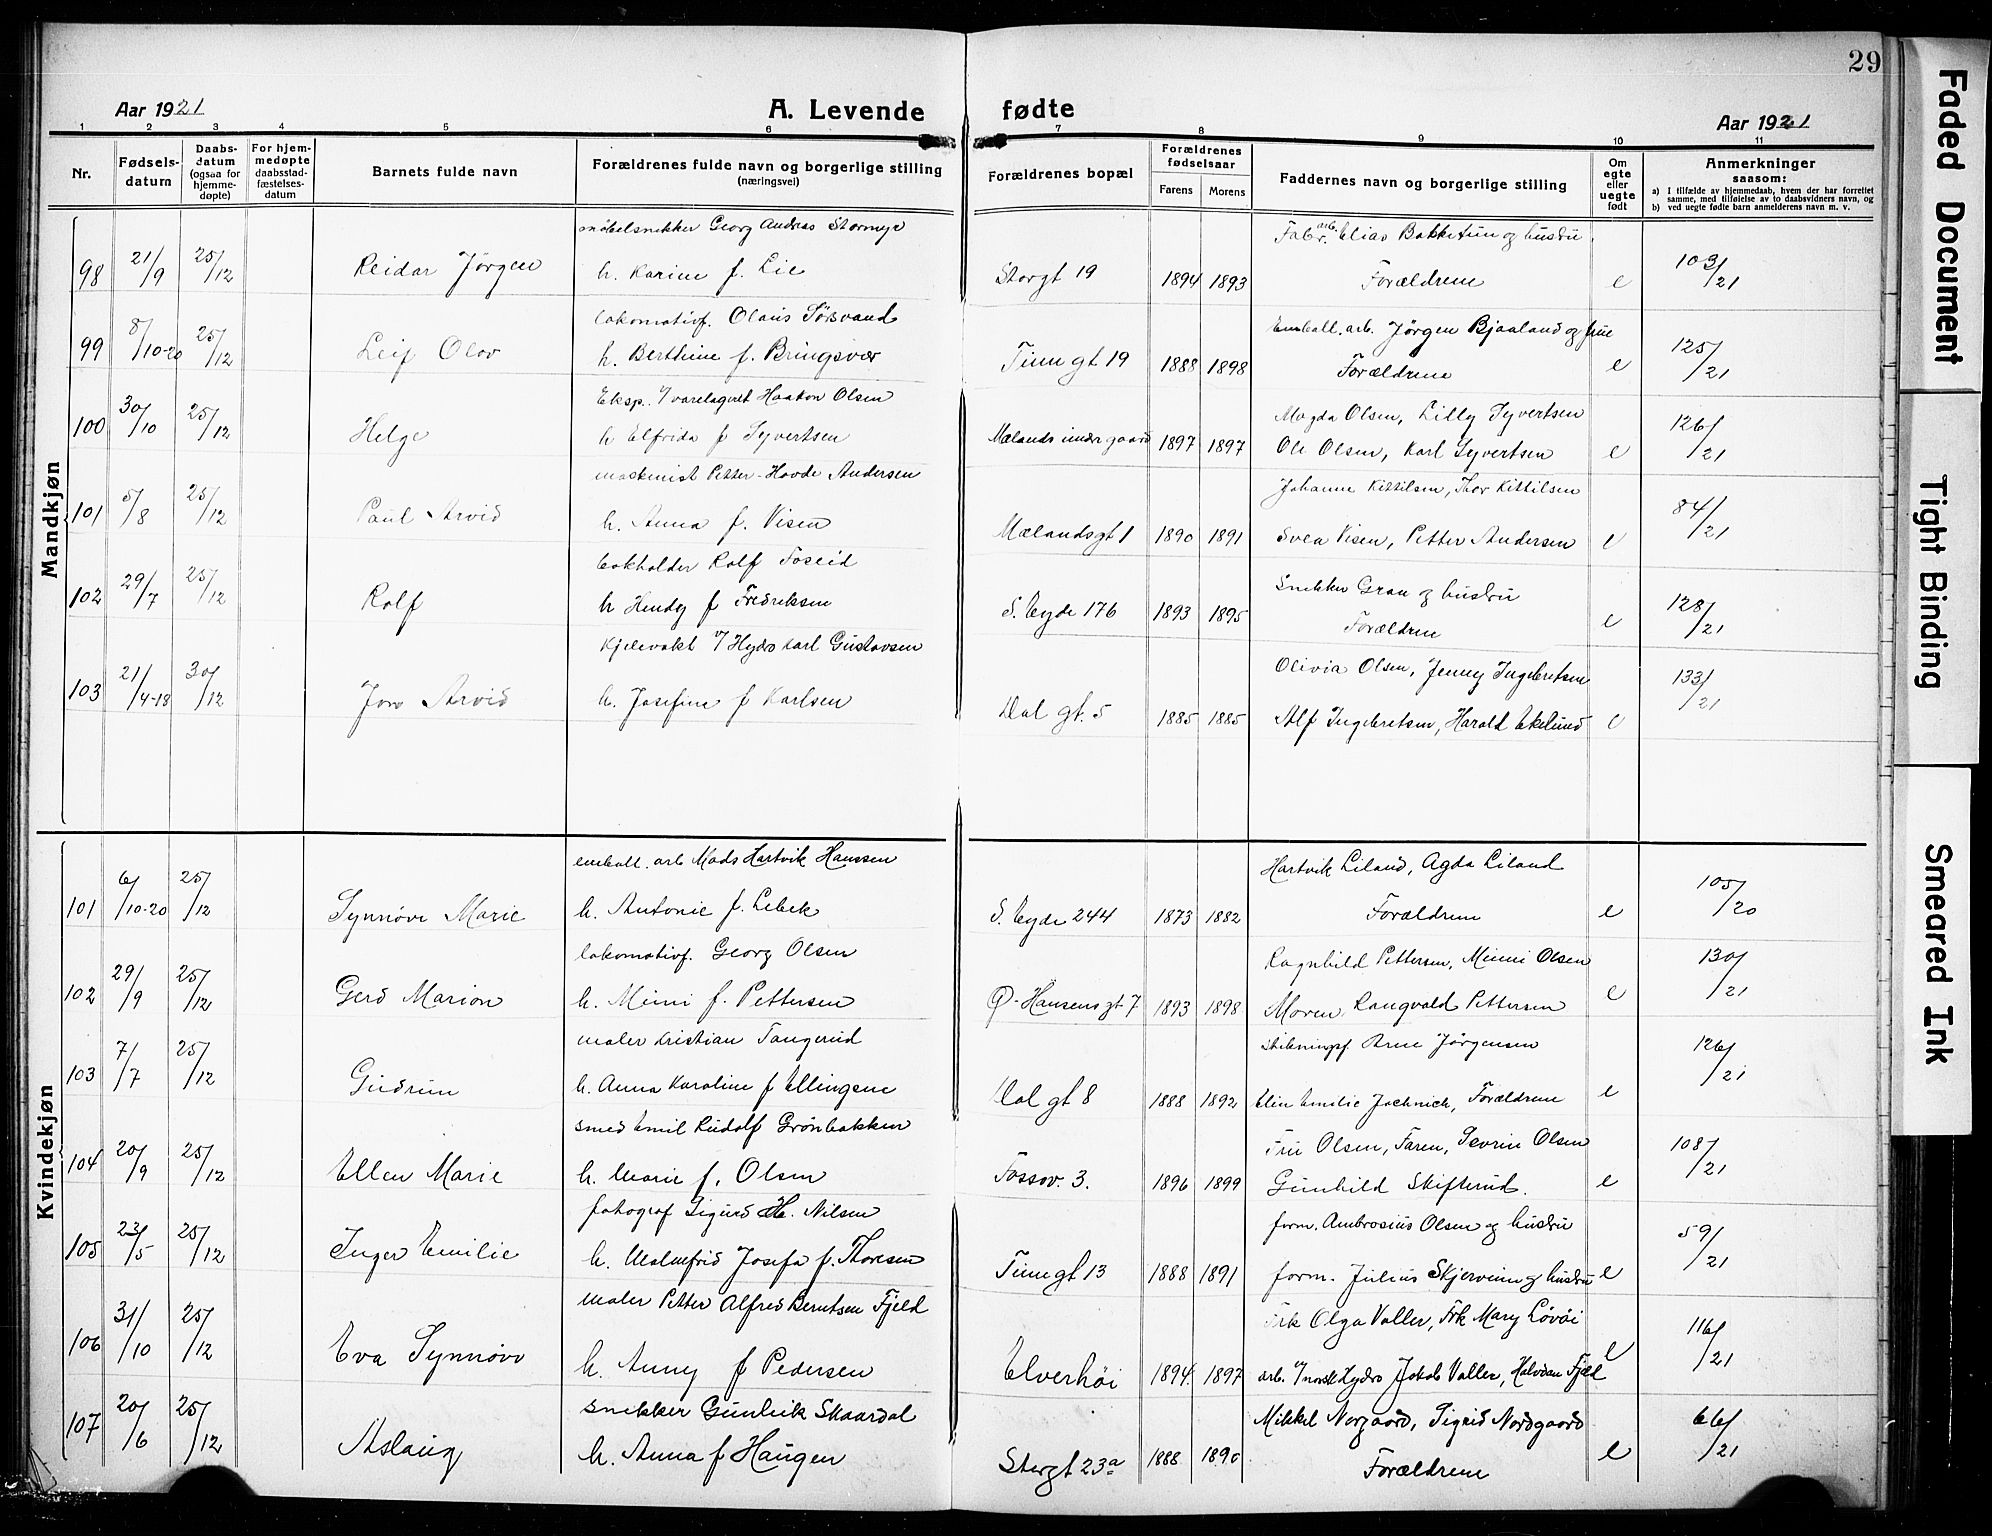 29
Aar 1921
A. Levende fødte
Aar 1921
1 2 3 4 5 6 7 8 9 10 11
Nr.
Fødsels-
datum
Daabs-
datum
(ogsaa for
hjemme-
døpte)
For hjem-
medøpte
daabsstad-
fæstelses-
datum
Barnets fulde navn
Forældrenes fulde navn og borgerlige stilling
(næringsvei)
Forældrenes bopæl
Forældrenes
fødselsaar
Farens Morens
Faddernes navn og borgerlige stilling
Om
egte
eller
uegte
født
Anmerkninger
saasom:
a) I tilfælde av hjemmedaab, hvem der har forrettet
samme, med tilføielse av to daabsvidners navn, og
b) ved uegte fødte barn anmelderens navn m. v.
Mandkjøn
møbelsnekker Georg Andreas Stormyr Fabr. arb. Elias Bakketun og hustru
98 21/9 25/12 Reidar Jørgen h. Karine f. Lie Storgt 19 1894 1893 Forældrene e 103/21
lokomotivf. Olaus Sørsvand Emball. arb. Jørgen Bjaaland og frue
99 8/10-20 25/12 Leif Olav h. Berthine f. Bringsvær Tinngt 19 1888 1898 Forældrene e 125/21
Eksp. v/ varelageret Haakon Olsen Magda Olsen, Lilly Syvertsen
100 30/10 25/12 Helge h Elfrida f Syvertsen Mælands indre gaard 1897 1897 Ole Olsen, Karl Syvertsen e 126/21
maskinist Petter-Hovde Andersen Johanne Kittilsen, Thor Kittilsen
101 5/8 25/12 Paul Arvid h. Anna f. Visen Mælandsgt 1 1890 1891 Svea Visen, Petter Andersen e 84/21
bokholder Rolf Foseid Snekker Gran og hustru
102 29/7 25/12 Rolf h Hendy f Fredriksen S. Eyde 176 1893 1895 Forældrene e 128/21
Kjelevakt v/ Hydro Karl Gustavsen Olivia Olsen, Jenny Ingebretsen
103 21/4-18 30/12 Arvid h. Josefine f Karlsen Dal gt. 5 1885 1885 Alf Ingebretsen, Harald Ekelund e 133/21
Kvindekjøn
emball. arb Mads Hartvik Hanssen Hartvik Liland, Agda Liland
101 6/10-20 25/12 Synnøve Marie h. Antonie f. Lebek S. Eyde 244 1873 1882 Forældrene e 105/20
lokomotivf. Georg Olsen Ragnhild Pettersen, Mimi Olsen
102 29/9 25/12 Gerd Marion h. Mimi f. Pettersen Ø-Hansensgt 7 1893 1898 Moren, Rangvald Pettersen e 130/21
maler Kristian Tangerud Arne Jørgensen
103 7/7 25/12 Gudrun h. Anna Karoline f Ellingsen Dal gt 8 1888 1892 Elin Emilie Jachnich, Forældrene e 126/21
smed Emil Rudolf Grønbakken Fru Olsen, Faren, Sevrin Olsen
104 20/9 25/12 Ellen Marie h. Marie f. Olsen Fossov. 3. 1896 1899 Gunhild Skifterud. e 108/21
fotograf Sigurd H. Nilsen form. Ambrosius Olsen og hustru
105 23/5 25/12 Inger Emilie h. Malmfrid Josefa f. Thoresen Tinngt 13 1888 1891 form. Julius Skjerveim og hustru e 59/21
maler Petter Alfred Berntsen Fjeld Frk Olga Valler, Frk Mary Løvøi
106 31/10 25/12 Eva Synnøve h. Anny f Pedersen Elverhøi 1894 1897 arb. v/ norsk Hydro Jakob Valler, Halvdan Fjeld e 116/21
snekker Gunleik Skaardal Mikkel Norgaard, Sigrid Nordgaard
107 20/6 25/12 Aslaug h. Anna f Haugen Storgt 23a 1888 1890 Forældrene e 66/21
Faded Document
Tight Binding
Smeared Ink